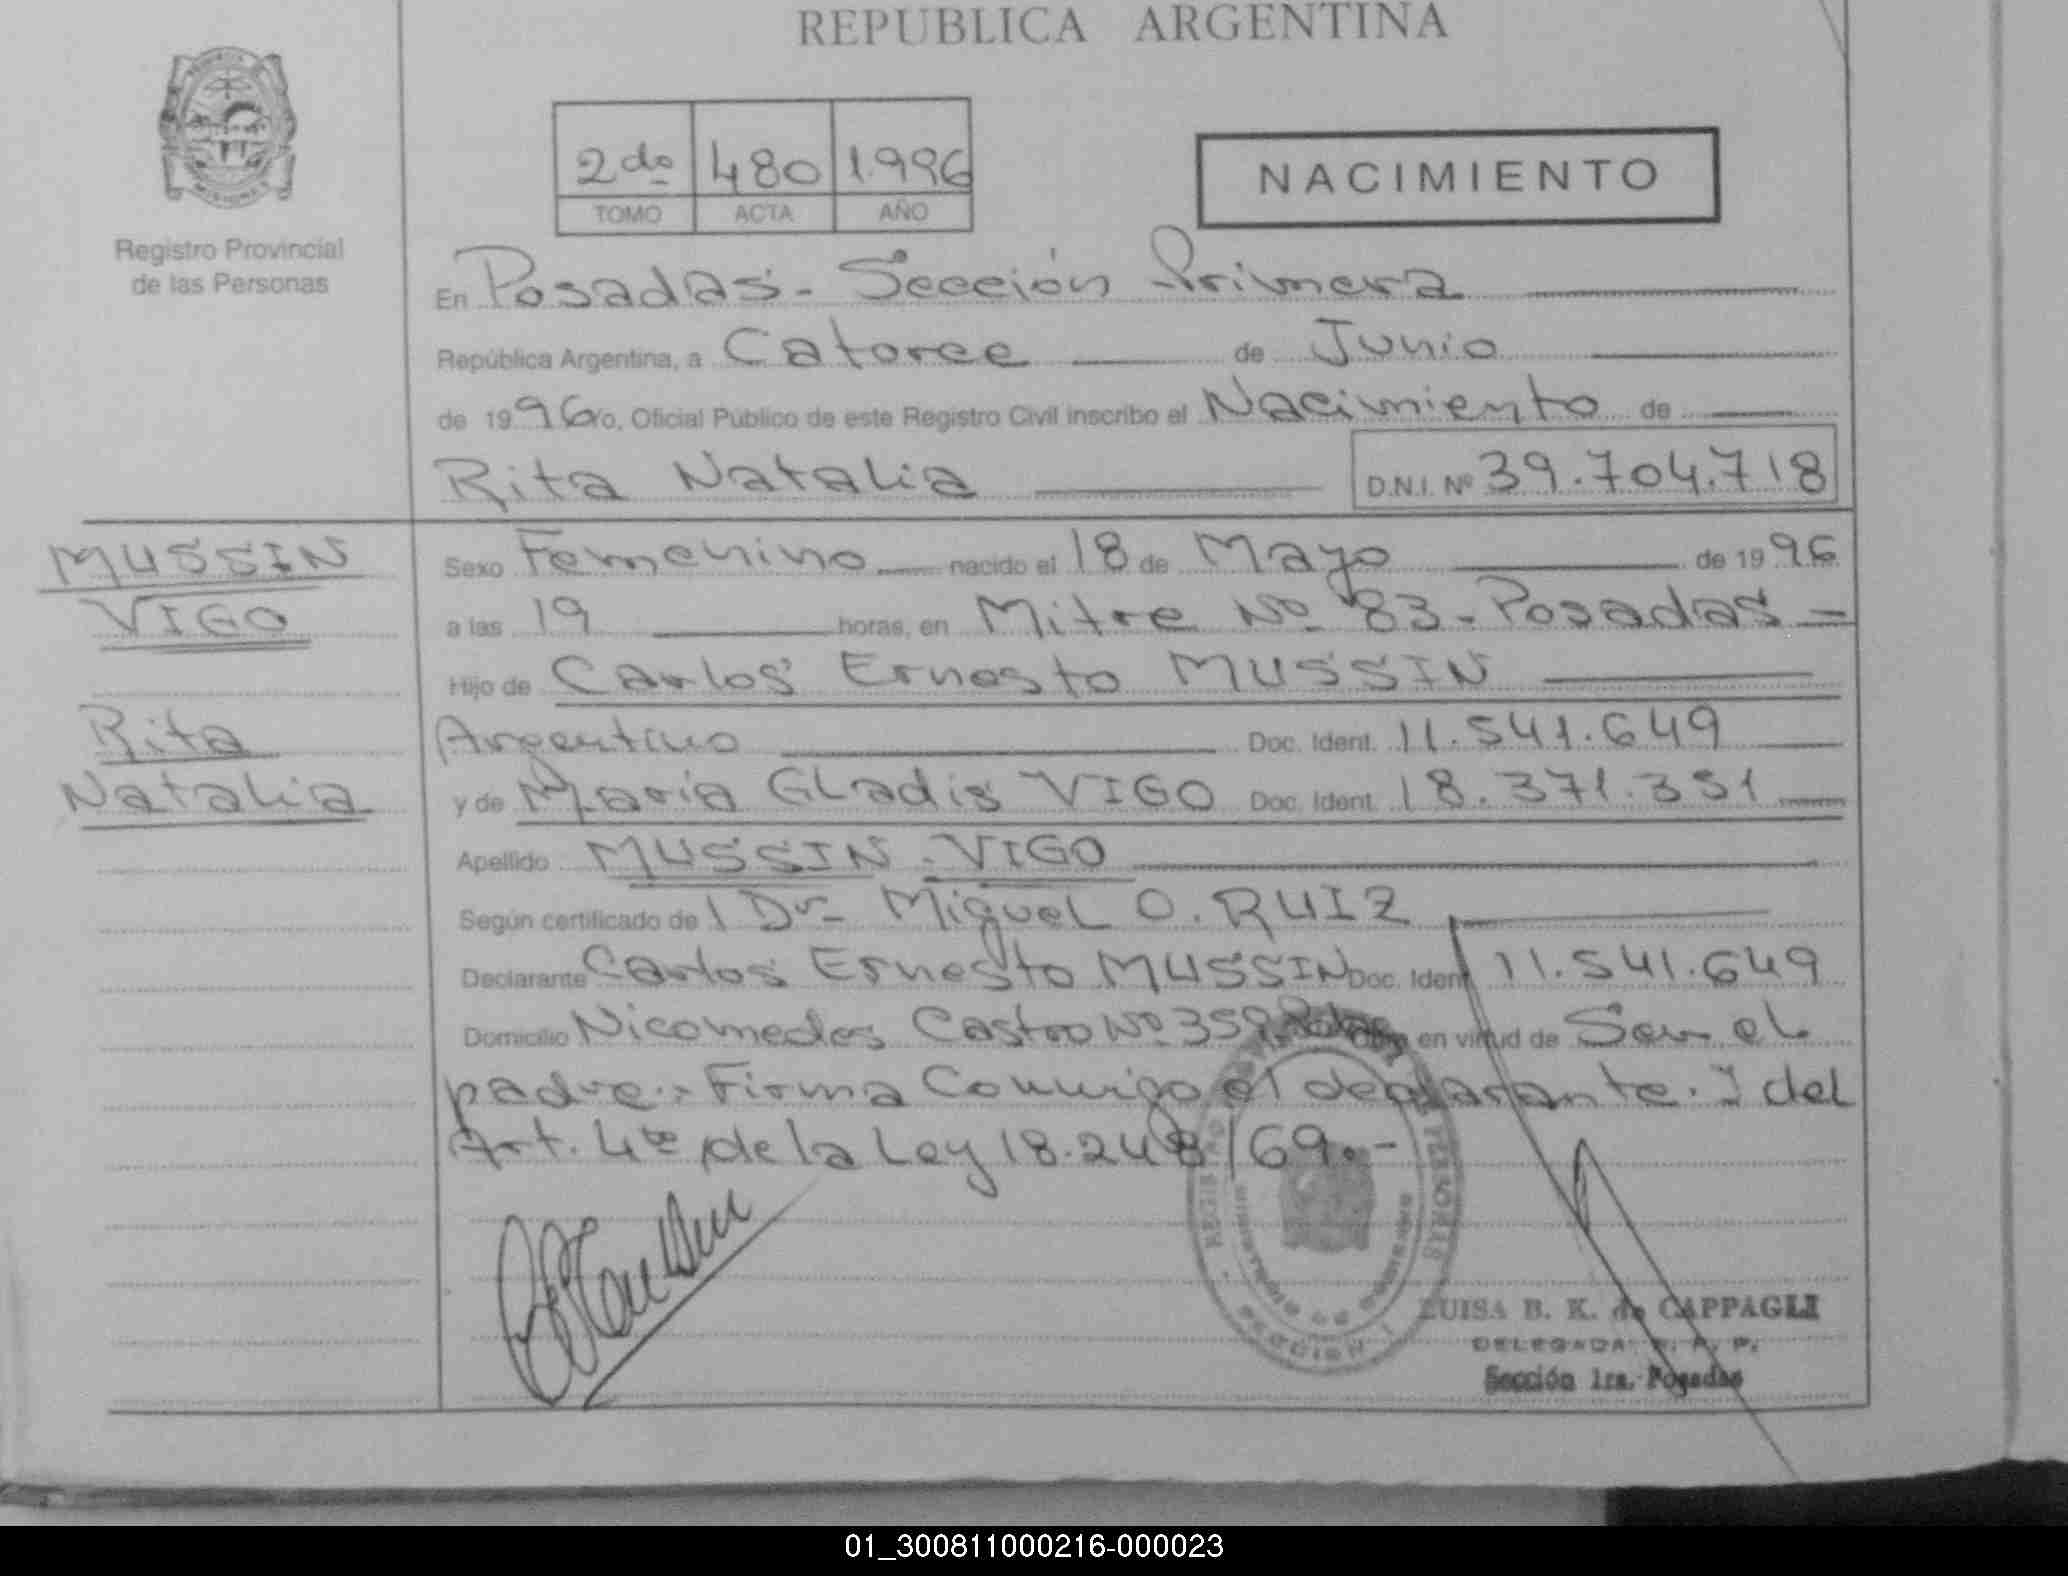 REPUBLICA ARGENTINA
Registro Provincial
de las Personas
2do 480 1.996
TOMO ACTA AÑO
NACIMIENTO
En Posadas - Sección Primera
República Argentina, a Catorce de Junio
de 1996 Yo, Oficial Público de este Registro Civil inscribo el Nacimiento de
Rita Natalia D.N.I. Nº 39.704.718
MUSSIN
VIGO
Rita
Natalia
Sexo Femenino nacido el 18 de Mayo de 1996
a las 19 horas, en Mitre Nº 83 - Posadas -
Hijo de Carlos Ernesto MUSSIN
Argentino Doc. Ident. 11.541.649
y de Maria Gladis VIGO Doc. Ident. 18.371.351
Apellido MUSSIN - VIGO
Según certificado de 1 Dr- Miguel O. RUIZ
Declarante Carlos Ernesto MUSSIN Doc. Ident. 11.541.649
Domicilio Nicomedes Castro Nº 359 en virtud de Ser el
padre.- Firma Conmigo el declarante. I del
Art. 4to de la Ley 18.248/69.-
REGISTRO PERSONAS
MINISTERIO DE GOBIERNO
SECCION 1
LUISA B. K. de CAPPAGLI
DELEGADA R. P. P.
Sección 1ra. Posadas
01_300811000216-000023